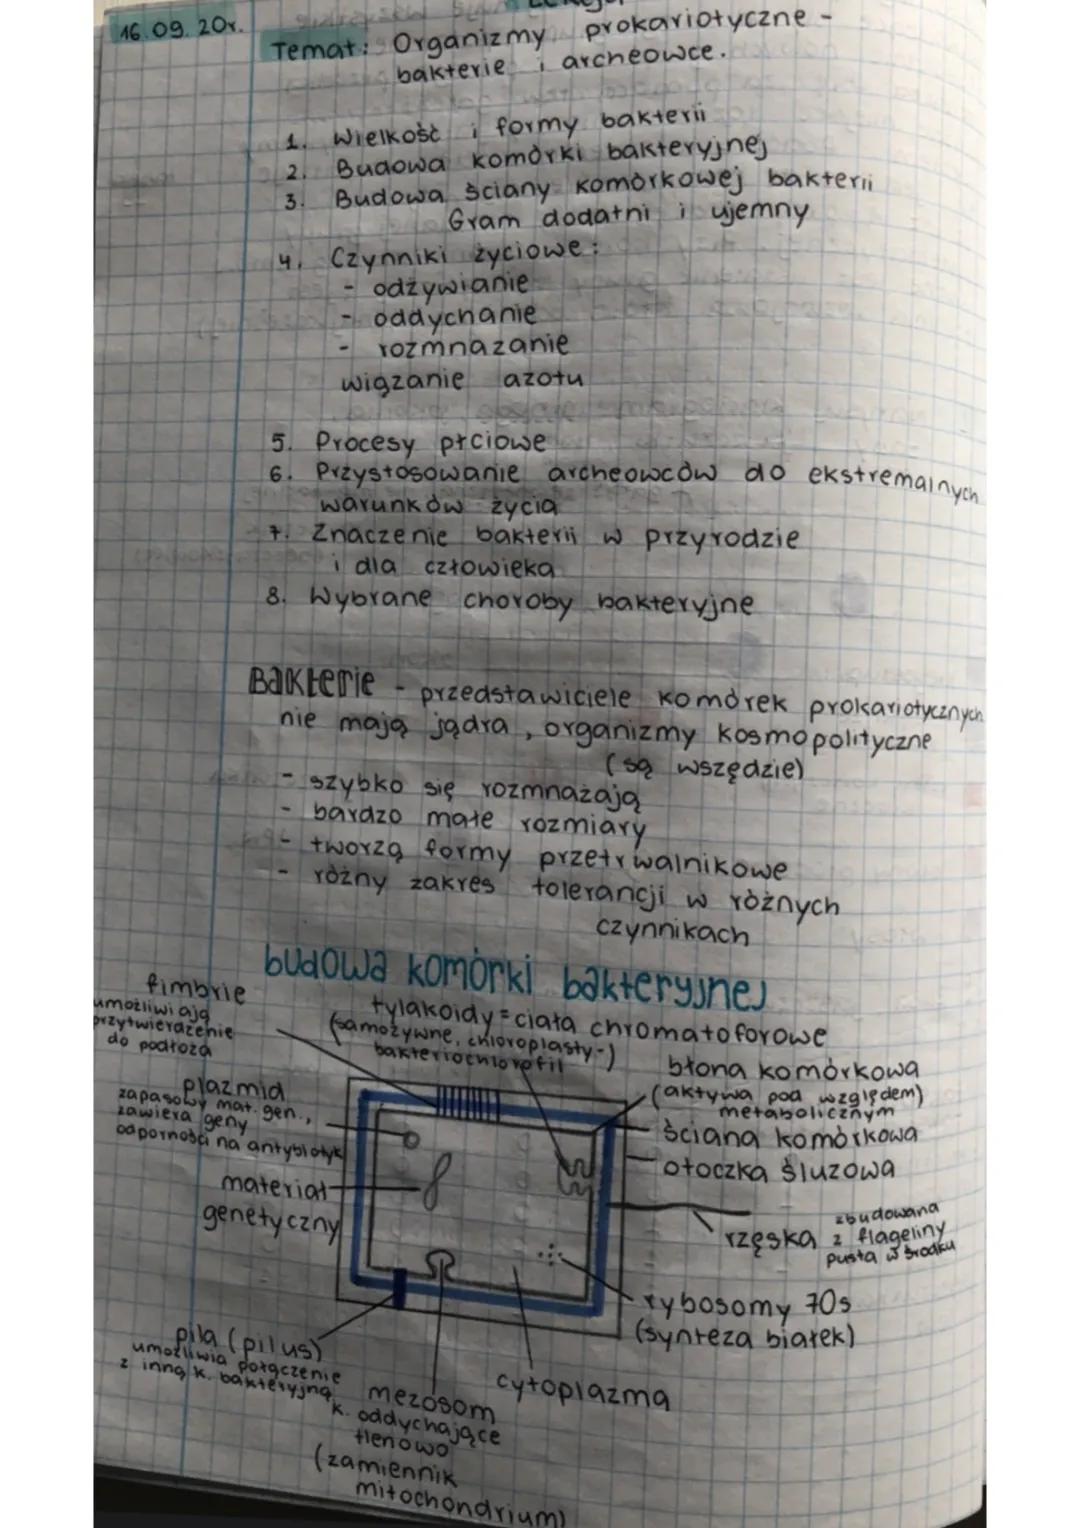 16.09.20r.
Temat: Organizmy prokariotyczne -
bakterie i archeowce.
1. Wielkość i formy bakterii
2. Budowa komórki bakteryjnej
3. Budowa ściany komórkowej bakterii
Gram dodatni i ujemny
4. Czynniki życiowe:
- odżywianie
- oddychanie
- rozmnażanie
wiązanie azotu
5. Procesy płciowe
6. Przystosowanie archeowców do ekstremalnych
warunków życia
7. Znaczenie bakterii w przyrodzie
i dla człowieka
8. Wybrane choroby bakteryjne
Bakterie - przedstawiciele komórek prokariotycznych
nie mają jądra, organizmy kosmopolityczne
(są wszędzie)
- szybko się rozmnażają
- bardzo małe rozmiary
- tworzą formy przetrwalnikowe
- różny zakres tolerancji w różnych
czynnikach
budowa komórki bakteryjnej
fimbrie
umożliwiają
przytwierdzenie
do podłoża
tylakoidy = ciała chromatoforowe
(samożywne, chloroplasty-)
bakteriochlorofil
błona komórkowa
(aktywa pod względem)
metabolicznym
plazmid
zapasowy mat. gen.,
zawiera geny
odporności na antybiotyk
ściana komórkowa
otoczka śluzowa
materiał
genetyczny
rzęska
zbudowana
z flageliny
pusta w środku
rybosomy 70s
(synteza białek)
pila (pilus)
umożliwia połączenie
z inną k. bakteryjną
cytoplazma
mezosom
k. oddychające
tlenowo
(zamiennik
mitochondrium)